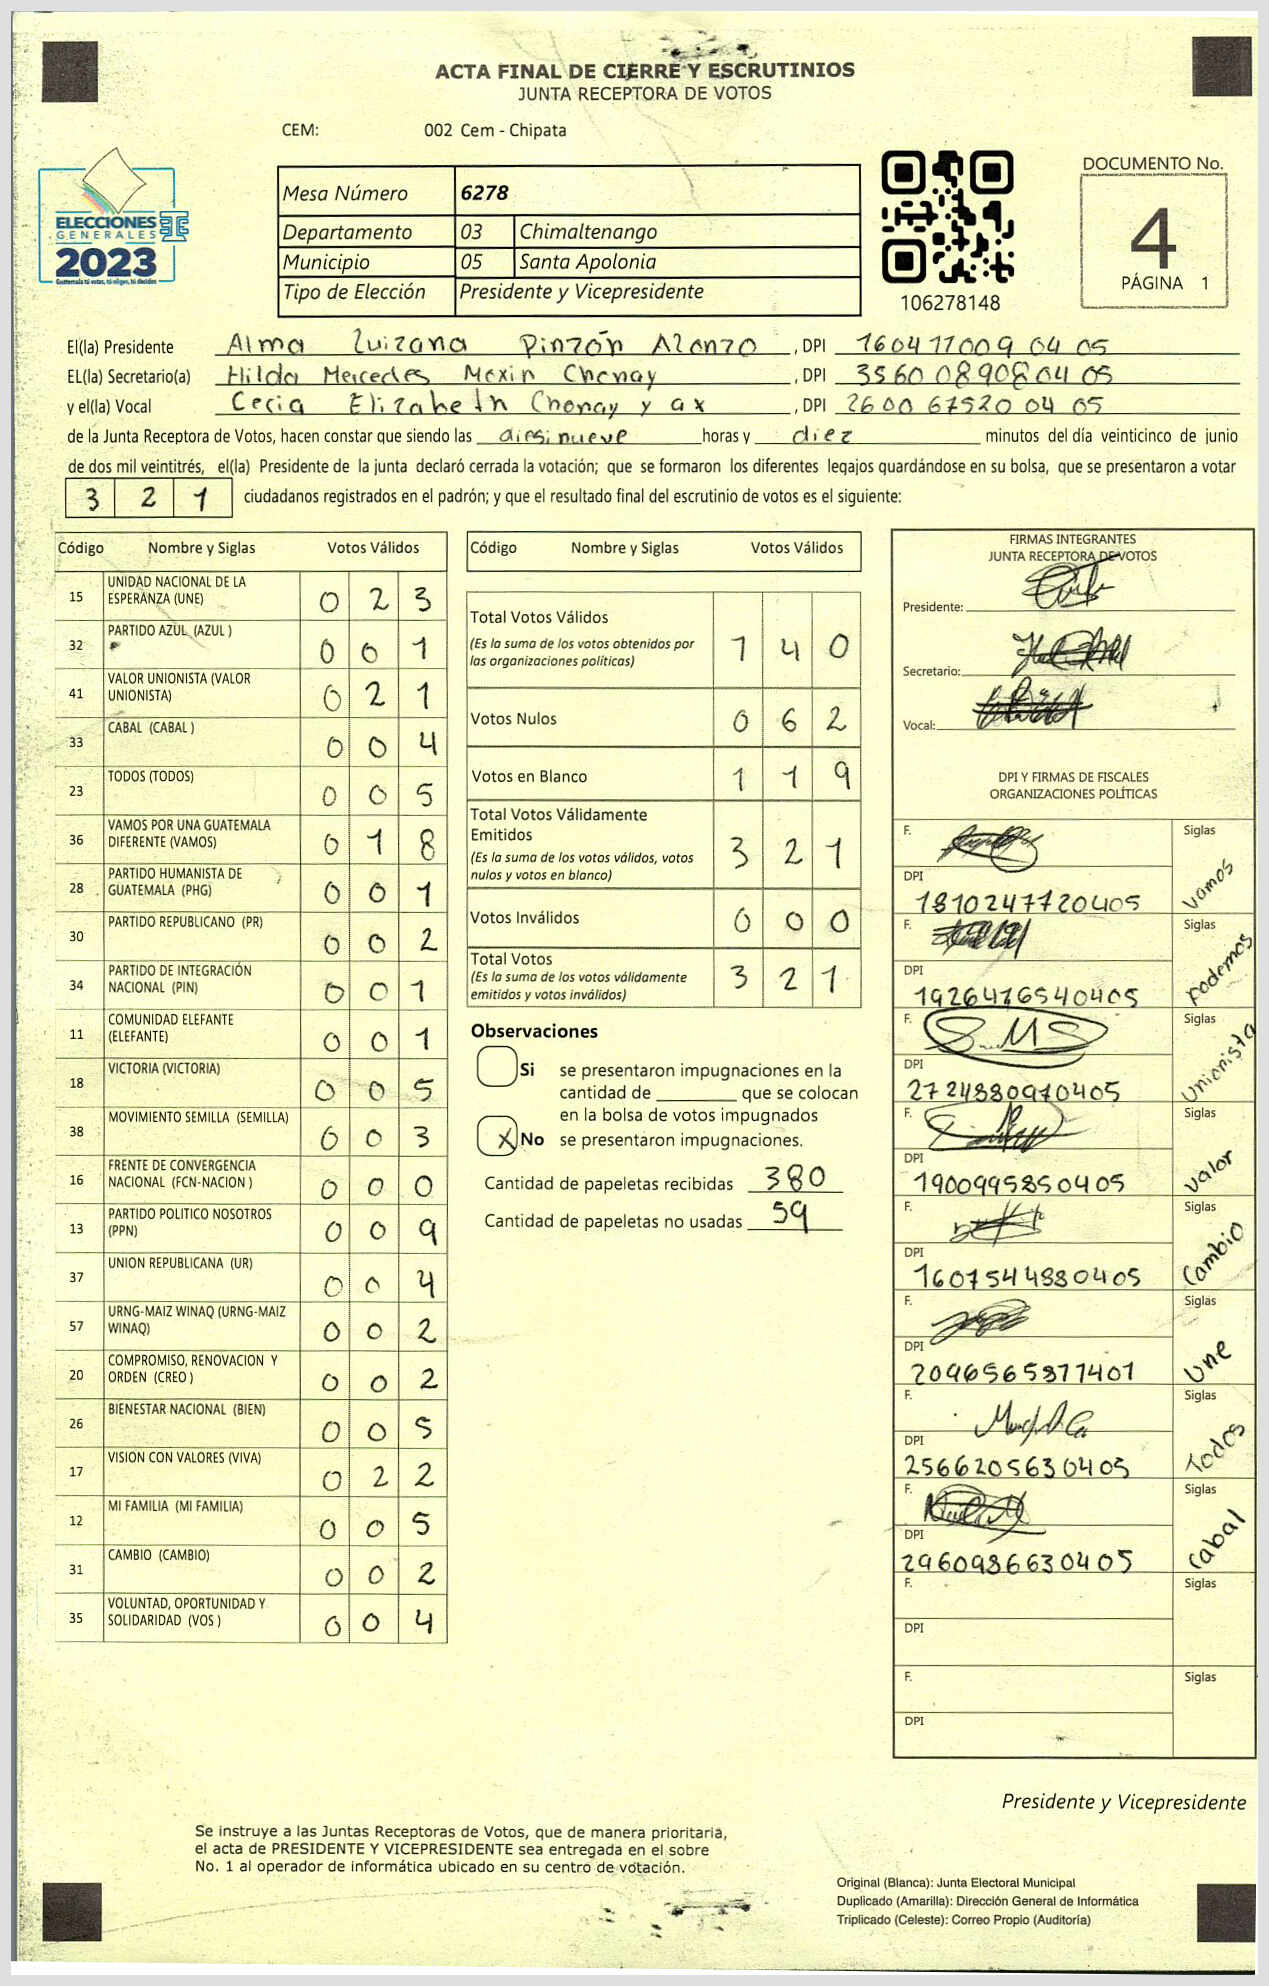 ACTA FINAL DE CIERRE Y ESCRUTINIOS
JUNTA RECEPTORA DE VOTOS
CEM: 002 Cem - Chipata
ELECCIONES
GENERALES
2023
Guatemala tú votas, tú eliges, tú decides
Mesa Número 6278
Departamento 03 Chimaltenango
Municipio 05 Santa Apolonia
Tipo de Elección Presidente y Vicepresidente
106278148
DOCUMENTO No.
4
PÁGINA 1
El(la) Presidente Alma Luizana Pinzón Alonzo , DPI 160411009 04 05
EL(la) Secretario(a) Hilda Mercedes Moxin Chonay , DPI 3560 08908 04 05
y el(la) Vocal Cecia Elizabeth Chonay y ax , DPI 2600 67520 04 05
de la Junta Receptora de Votos, hacen constar que siendo las diesinueve horas y diez minutos del día veinticinco de junio
de dos mil veintitrés, el(la) Presidente de la junta declaró cerrada la votación; que se formaron los diferentes legajos quardándose en su bolsa, que se presentaron a votar
3 2 1 ciudadanos registrados en el padrón; y que el resultado final del escrutinio de votos es el siguiente:
Código Nombre y Siglas Votos Válidos
15 UNIDAD NACIONAL DE LA ESPERANZA (UNE) 0 2 3
32 PARTIDO AZUL (AZUL ) 0 0 1
41 VALOR UNIONISTA (VALOR UNIONISTA) 0 2 1
33 CABAL (CABAL ) 0 0 4
23 TODOS (TODOS) 0 0 5
36 VAMOS POR UNA GUATEMALA DIFERENTE (VAMOS) 0 1 8
28 PARTIDO HUMANISTA DE GUATEMALA (PHG) 0 0 1
30 PARTIDO REPUBLICANO (PR) 0 0 2
34 PARTIDO DE INTEGRACIÓN NACIONAL (PIN) 0 0 1
11 COMUNIDAD ELEFANTE (ELEFANTE) 0 0 1
18 VICTORIA (VICTORIA) 0 0 5
38 MOVIMIENTO SEMILLA (SEMILLA) 0 0 3
16 FRENTE DE CONVERGENCIA NACIONAL (FCN-NACION ) 0 0 0
13 PARTIDO POLITICO NOSOTROS (PPN) 0 0 9
37 UNION REPUBLICANA (UR) 0 0 4
57 URNG-MAIZ WINAQ (URNG-MAIZ WINAQ) 0 0 2
20 COMPROMISO, RENOVACION Y ORDEN (CREO ) 0 0 2
26 BIENESTAR NACIONAL (BIEN) 0 0 5
17 VISION CON VALORES (VIVA) 0 2 2
12 MI FAMILIA (MI FAMILIA) 0 0 5
31 CAMBIO (CAMBIO) 0 0 2
35 VOLUNTAD, OPORTUNIDAD Y SOLIDARIDAD (VOS ) 0 0 4
Código Nombre y Siglas Votos Válidos
Total Votos Válidos 1 4 0
(Es la suma de los votos obtenidos por
las organizaciones políticas)
Votos Nulos 0 6 2
Votos en Blanco 1 1 9
Total Votos Válidamente
Emitidos 3 2 1
(Es la suma de los votos válidos, votos
nulos y votos en blanco)
Votos Inválidos 0 0 0
Total Votos 3 2 1
(Es la suma de los votos válidamente
emitidos y votos inválidos)
Observaciones
Si se presentaron impugnaciones en la
cantidad de ________ que se colocan
en la bolsa de votos impugnados
X No se presentaron impugnaciones.
Cantidad de papeletas recibidas 380
Cantidad de papeletas no usadas 59
FIRMAS INTEGRANTES
JUNTA RECEPTORA DE VOTOS
Presidente:
Secretario:
Vocal:
DPI Y FIRMAS DE FISCALES
ORGANIZACIONES POLÍTICAS
F. Siglas vamos
DPI 1810247720405
F. Siglas podemos
DPI 1926476540405
F. Siglas unionista
DPI 2724880970405
F. Siglas valor
DPI 1900995850405
F. Siglas Cambio
DPI 1607544880405
F. Siglas une
DPI 2096565877401
F. Siglas Todos
DPI 2566205630405
F. Siglas Cabal
DPI 2960986630405
F. Siglas
DPI
F. Siglas
DPI
Presidente y Vicepresidente
Se instruye a las Juntas Receptoras de Votos, que de manera prioritaria,
el acta de PRESIDENTE Y VICEPRESIDENTE sea entregada en el sobre
No. 1 al operador de informática ubicado en su centro de votación.
Original (Blanca): Junta Electoral Municipal
Duplicado (Amarilla): Dirección General de Informática
Triplicado (Celeste): Correo Propio (Auditoría)